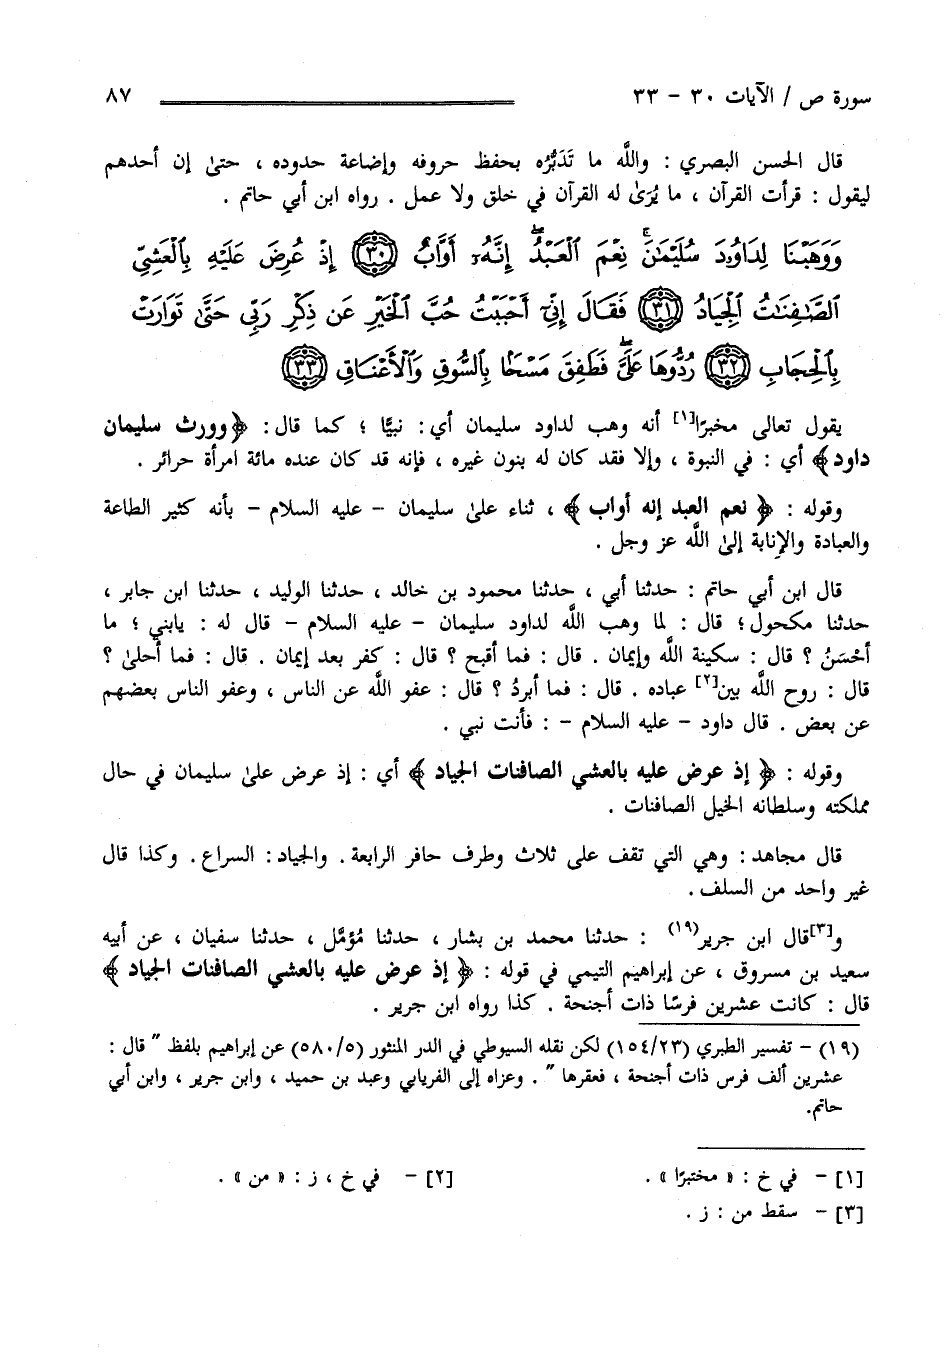 سورة ص / الآيات ٣٠ - ٣٣ ٨٧
قال الحسن البصري : والله ما تَدَبُّرُه بحفظ حروفه وإضاعة حدوده ، حتىٰ إن أحدهم
ليقول : قرأت القرآن ، ما يُرَىٰ له القرآن في خلق ولا عمل . رواه ابن أبي حاتم .
وَوَهَبْنَا لِدَاوُۥدَ سُلَيْمَٰنَۚ نِعْمَ ٱلْعَبْدُۖ إِنَّهُۥٓ أَوَّابٌ ﴿٣٠﴾ إِذْ عُرِضَ عَلَيْهِ بِٱلْعَشِيِّ
ٱلصَّٰفِنَٰتُ ٱلْجِيَادُ ﴿٣١﴾ فَقَالَ إِنِّىٓ أَحْبَبْتُ حُبَّ ٱلْخَيْرِ عَن ذِكْرِ رَبِّى حَتَّىٰ تَوَارَتْ
بِٱلْحِجَابِ ﴿٣٢﴾ رُدُّوهَا عَلَىَّۖ فَطَفِقَ مَسْحًۢا بِٱلسُّوقِ وَٱلْأَعْنَاقِ ﴿٣٣﴾
يقول تعالى مخبرًا[١] أنه وهب لداود سليمان أي: نبيًّا ؛ كما قال: ﴿وورث سليمان
داود﴾ أي : في النبوة ، وإلا فقد كان له بنون غيره ، فإنه قد كان عنده مائة امرأة حرائر .
وقوله : ﴿ نعم العبد إنه أواب ﴾ ، ثناء علىٰ سليمان - عليه السلام - بأنه كثير الطاعة
والعبادة والإنابة إلىٰ الله عز وجل .
قال ابن أبي حاتم : حدثنا أبي ، حدثنا محمود بن خالد ، حدثنا الوليد ، حدثنا ابن جابر ،
حدثنا مكحول؛ قال : لما وهب الله لداود سليمان - عليه السلام - قال له : يابني ؛ ما
أحْسَنُ ؟ قال : سكينة الله وإيمان . قال : فما أقبح ؟ قال : كفر بعد إيمان . قال : فما أحلىٰ ؟
قال : روح الله بين[٢] عباده . قال : فما أبردُ ؟ قال : عفو الله عن الناس ، وعفو الناس بعضهم
عن بعض . قال داود - عليه السلام - : فأنت نبي .
وقوله : ﴿ إذ عرض عليه بالعشي الصافنات الجياد ﴾ أي : إذ عرض علىٰ سليمان في حال
مملكته وسلطانه الخيل الصافنات .
قال مجاهد : وهي التي تقف على ثلاث وطرف حافر الرابعة. والجياد: السراع. وكذا قال
غير واحد من السلف.
و[٣]قال ابن جرير(١٩) : حدثنا محمد بن بشار ، حدثنا مُؤمَّل ، حدثنا سفيان ، عن أبيه
سعيد بن مسروق ، عن إبراهيم التيمي في قوله : ﴿ إذ عرض عليه بالعشي الصافنات الجياد ﴾
قال : كانت عشرين فرسًا ذات أجنحة . كذا رواه ابن جرير .
(١٩) - تفسير الطبري (١٥٤/٢٣) لكن نقله السيوطي في الدر المنثور (٥٨٠/٥) عن إبراهيم بلفظ " قال :
عشرين ألف فرس ذات أجنحة ، فعقرها " . وعزاه إلى الفريابي وعبد بن حميد ، وابن جرير ، وابن أبي
حاتم.
[١] - في خ : « مختبرًا » . [٢] - في خ ، ز : « من » .
[٣] - سقط من : ز .